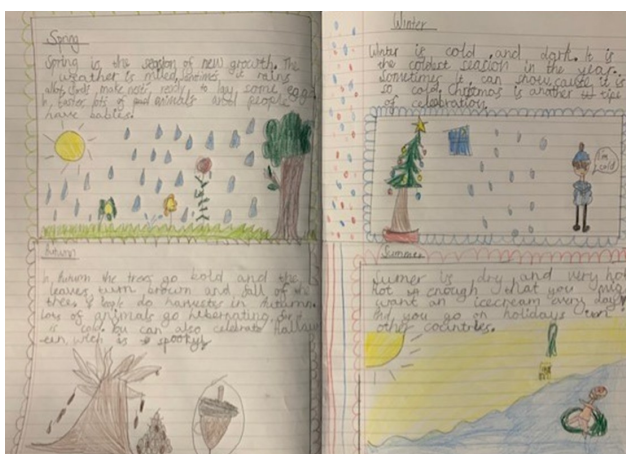 Spring
Spring is the season of new growth. The
weather is mild, it rains
alot, make nest, ready to lay some eggs.
lots of animals and people
have babies.
Winter
Winter is cold and dark. It is
the coldest season in the year.
Sometimes it can snow, cause it is
so cold. Christmas is another
of celebration.
I'm cold
Autumn
In Autumn the trees go bold and the
leaves turn brown and fall of the
trees. people do harvester in Autumn.
lots of animals go hibernating, for it
is cold. You can also celebrate hallow
-een, wich is spooky
Summer
Summer is dry and very hot
hot enough that you
want an icecream every day
And you go on holidays
other countries.